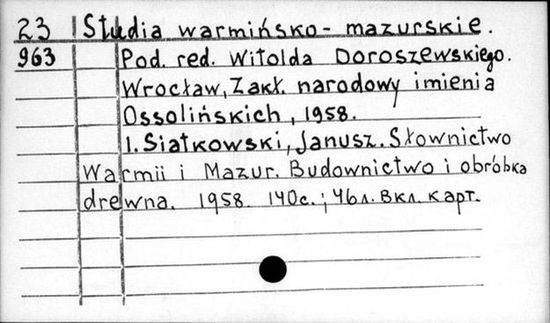 23 Studia warmińsko-mazurskie.
963 Pod. red. Witolda Doroszewskiego.
Wrocław, Zakł. narodowy imienia
Ossolińskich, 1958.
1. Siatkowski, Janusz. Słownictwo
Warmii i Mazur. Budownictwo i obróbka
drewna. 1958. 140с.; 46л. вкл. карт.